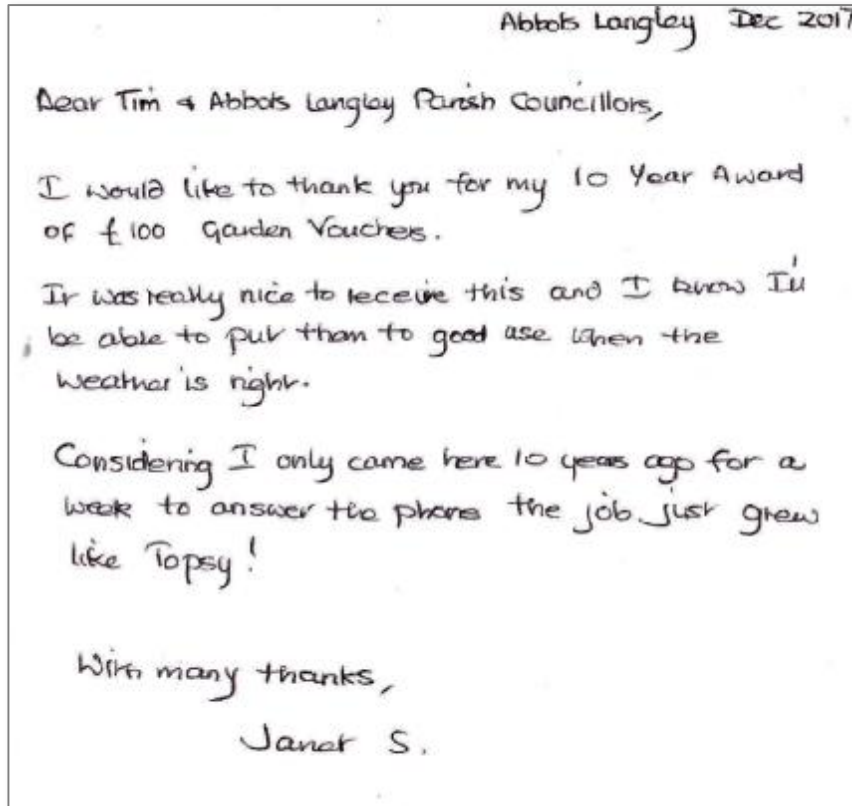 Abbots Langley Dec 2017
Dear Tim & Abbots Langley Parish Councillors,
I would like to thank you for my 10 Year Award
of £100 Garden Vouchers.
It was really nice to receive this and I know I'll
be able to put them to good use when the
weather is right.
Considering I only came here 10 years ago for a
week to answer the phone the job just grew
like Topsy!
With many thanks,
Janet S.